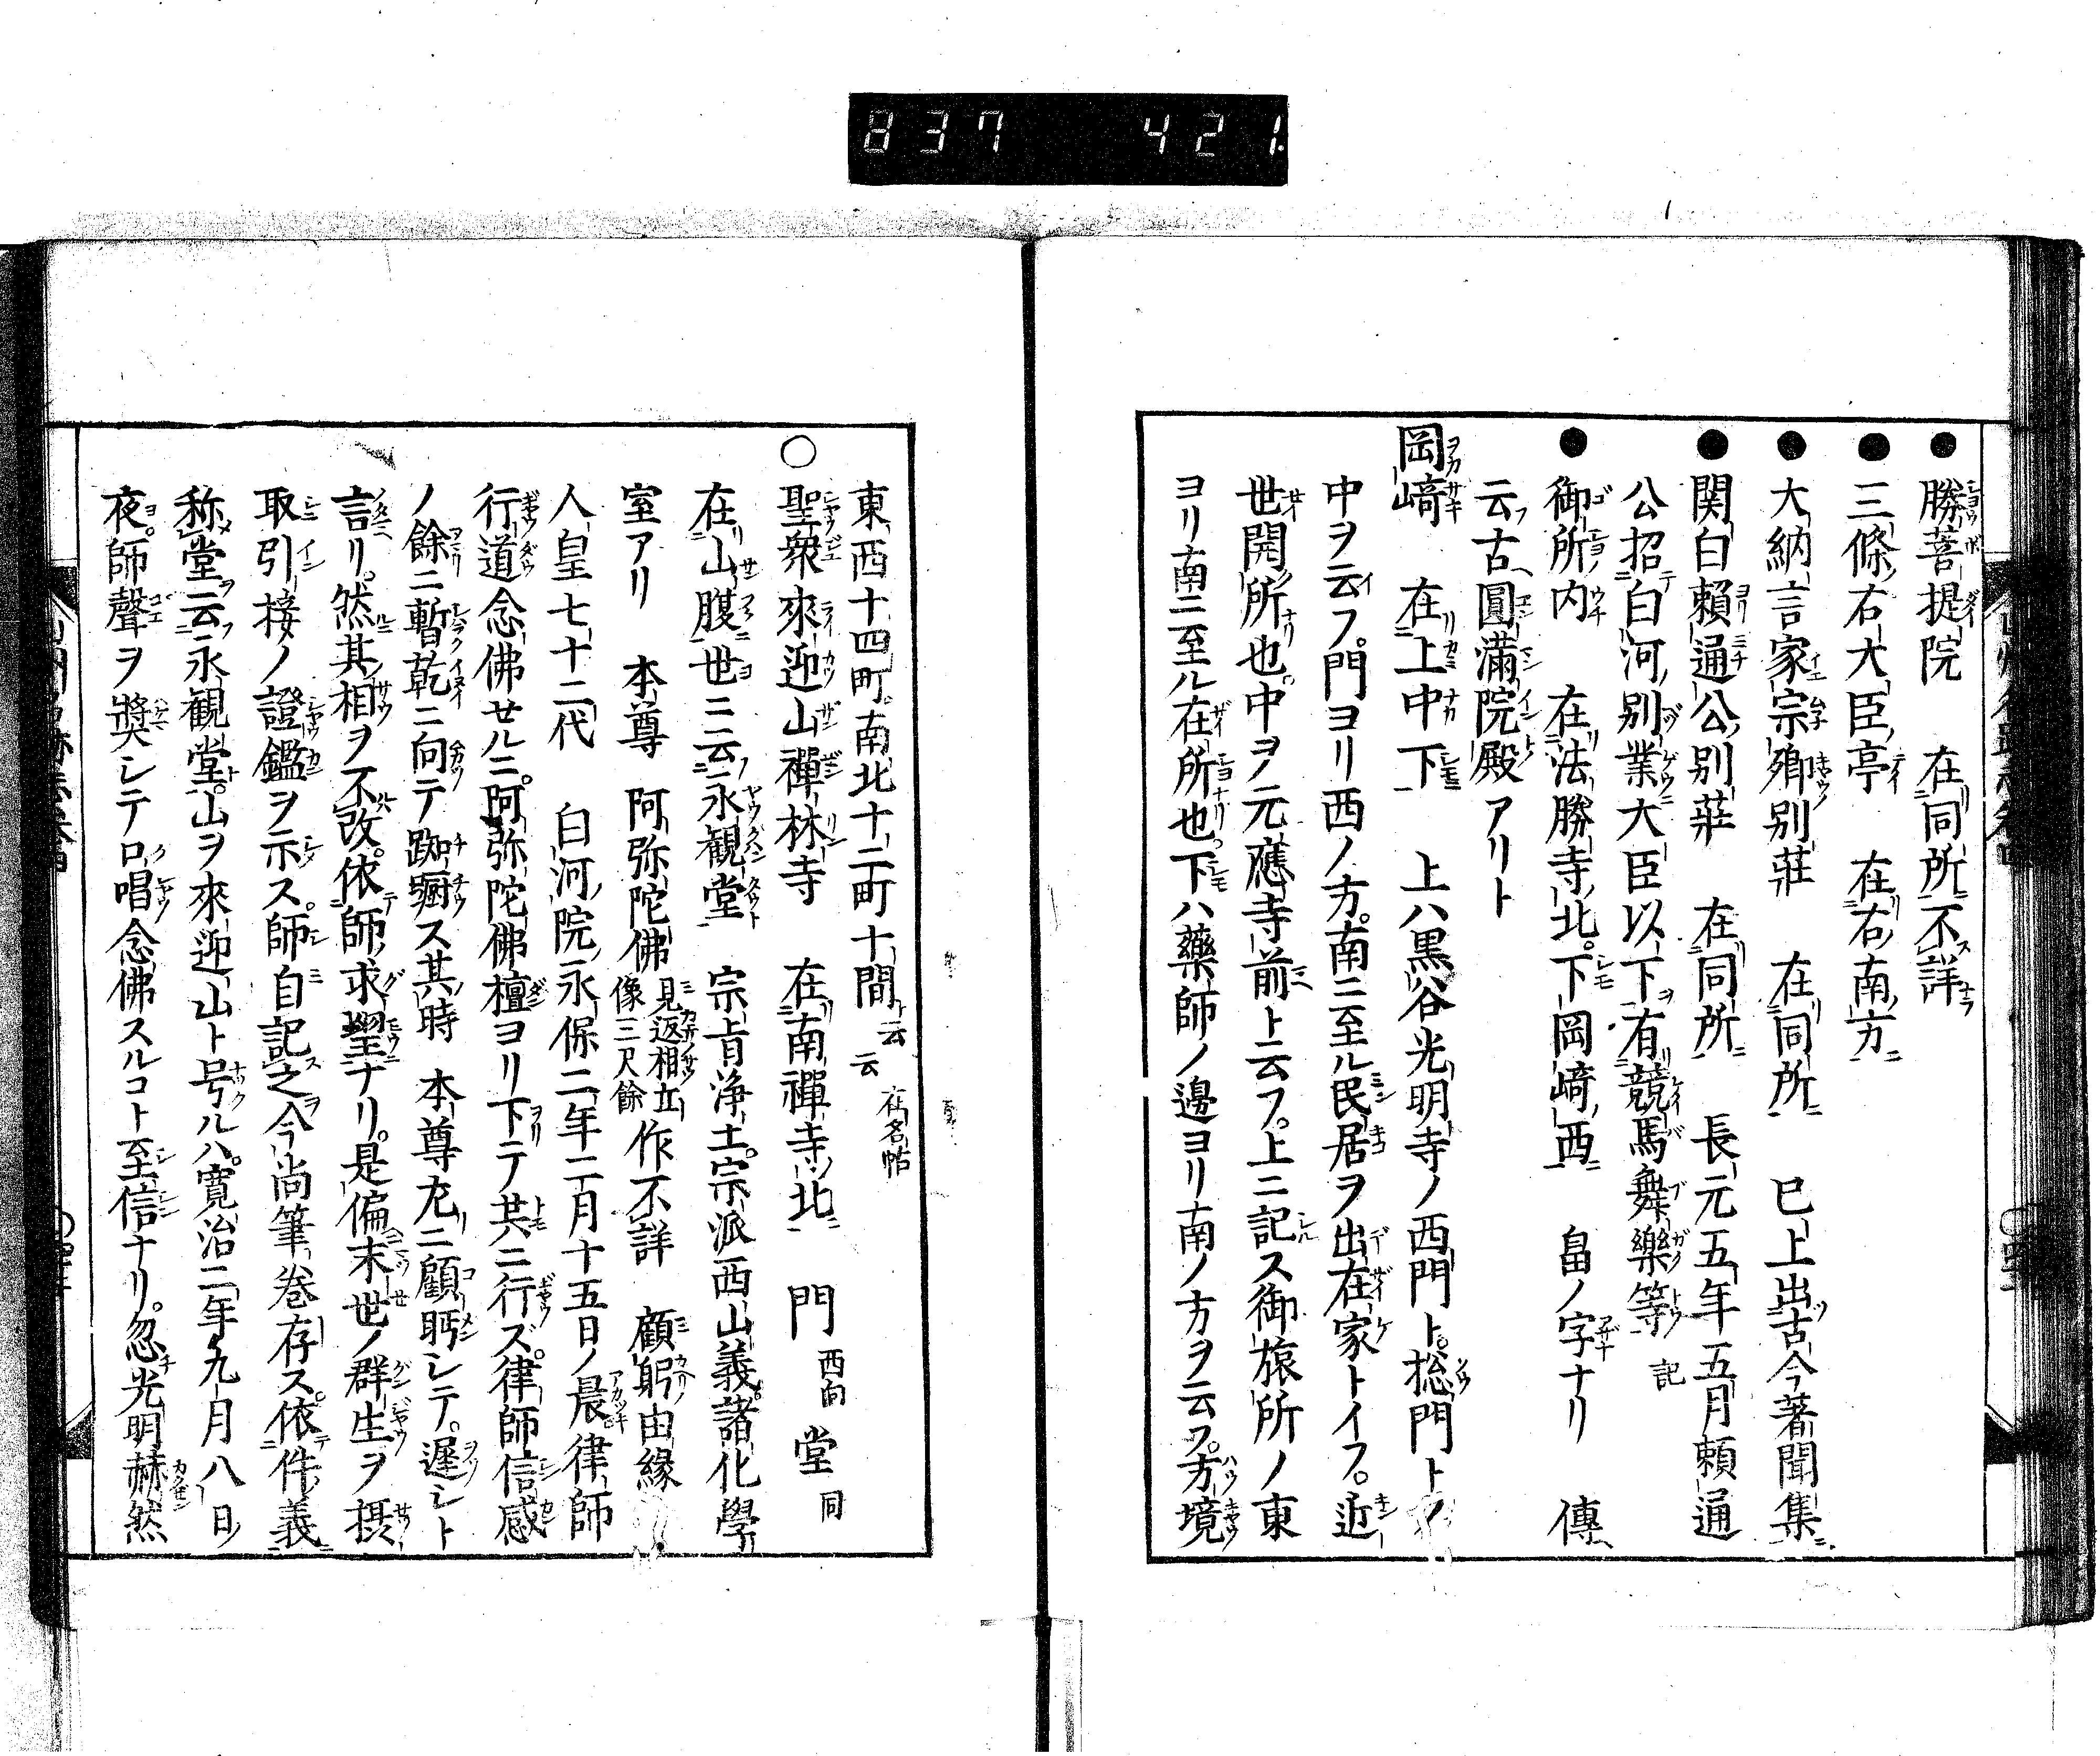 837 421
●勝菩提院　在同所不詳
●三條右大臣亭　在右南方
●大納言家宗卿別莊　在同所　已上出古今著聞集
●関白賴通公別莊　在同所　長元五年五月賴通
公招白河別業大臣以下有競馬舞樂等 記
●御所内　在法勝寺北下岡﨑西　畠ノ字ナリ　傳
云古圓滿院殿アリト
岡﨑　在上中下　上ハ黒谷光明寺ノ西門ト。総門トノ
中ヲ云フ。門ヨリ西ノ方。南ニ至ル民居ヲ出在家トイフ。近
世開所也。中ヲ元應寺前ト云フ。上ニ記ス御旅所ノ東
ヨリ南ニ至ル在所也。下ハ藥師ノ邊ヨリ南ノ方ヲ云フ。方境
東西十四町。南北十二町十間ト云云
○聖衆來迎山禪林寺　在南禪寺北　門 西向 堂 同
在山腹世ニ云永観堂　宗旨浄土宗派西山義諸化學
室アリ　本尊　阿弥陀佛 見返相立像三尺餘 作不詳　顧躬由縁
人皇七十二代　白河院永保二年二月十五日ノ晨律師
行道念佛セルニ。阿弥陀佛檀ヨリ下テ共ニ行ズ。律師信感
ノ餘ニ暫乾ニ向テ踟蹰ス其時　本尊左ニ顧眄シテ。遲シト
言リ。然其相ヲ不改。依師求聖ナリ。是偏末世ノ群生ヲ摂
取引接ノ證鑑ヲ示ス。師自記之今尚筆巻存ス。依件義
称堂云永観堂。山ヲ來迎山ト号ルハ。寛治二年九月八日
夜。師聲ヲ奬シテ口唱念佛スルコト至信ナリ。忽光明赫然